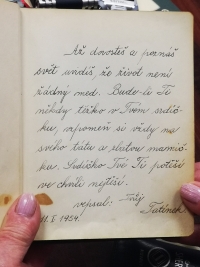 Až dorosteš a poznáš
svět uvidíš, že život není
žádný med. Bude-li Ti
někdy těžko v Tvém srdíč-
ku, vzpomeň si vždy na
svého tátu a zlatou mamič-
ku. Srdíčko Tvé Ti potěší
ve chvíli nejtěší.
vepsal: Tvůj
Tatínek
11. I 1954.